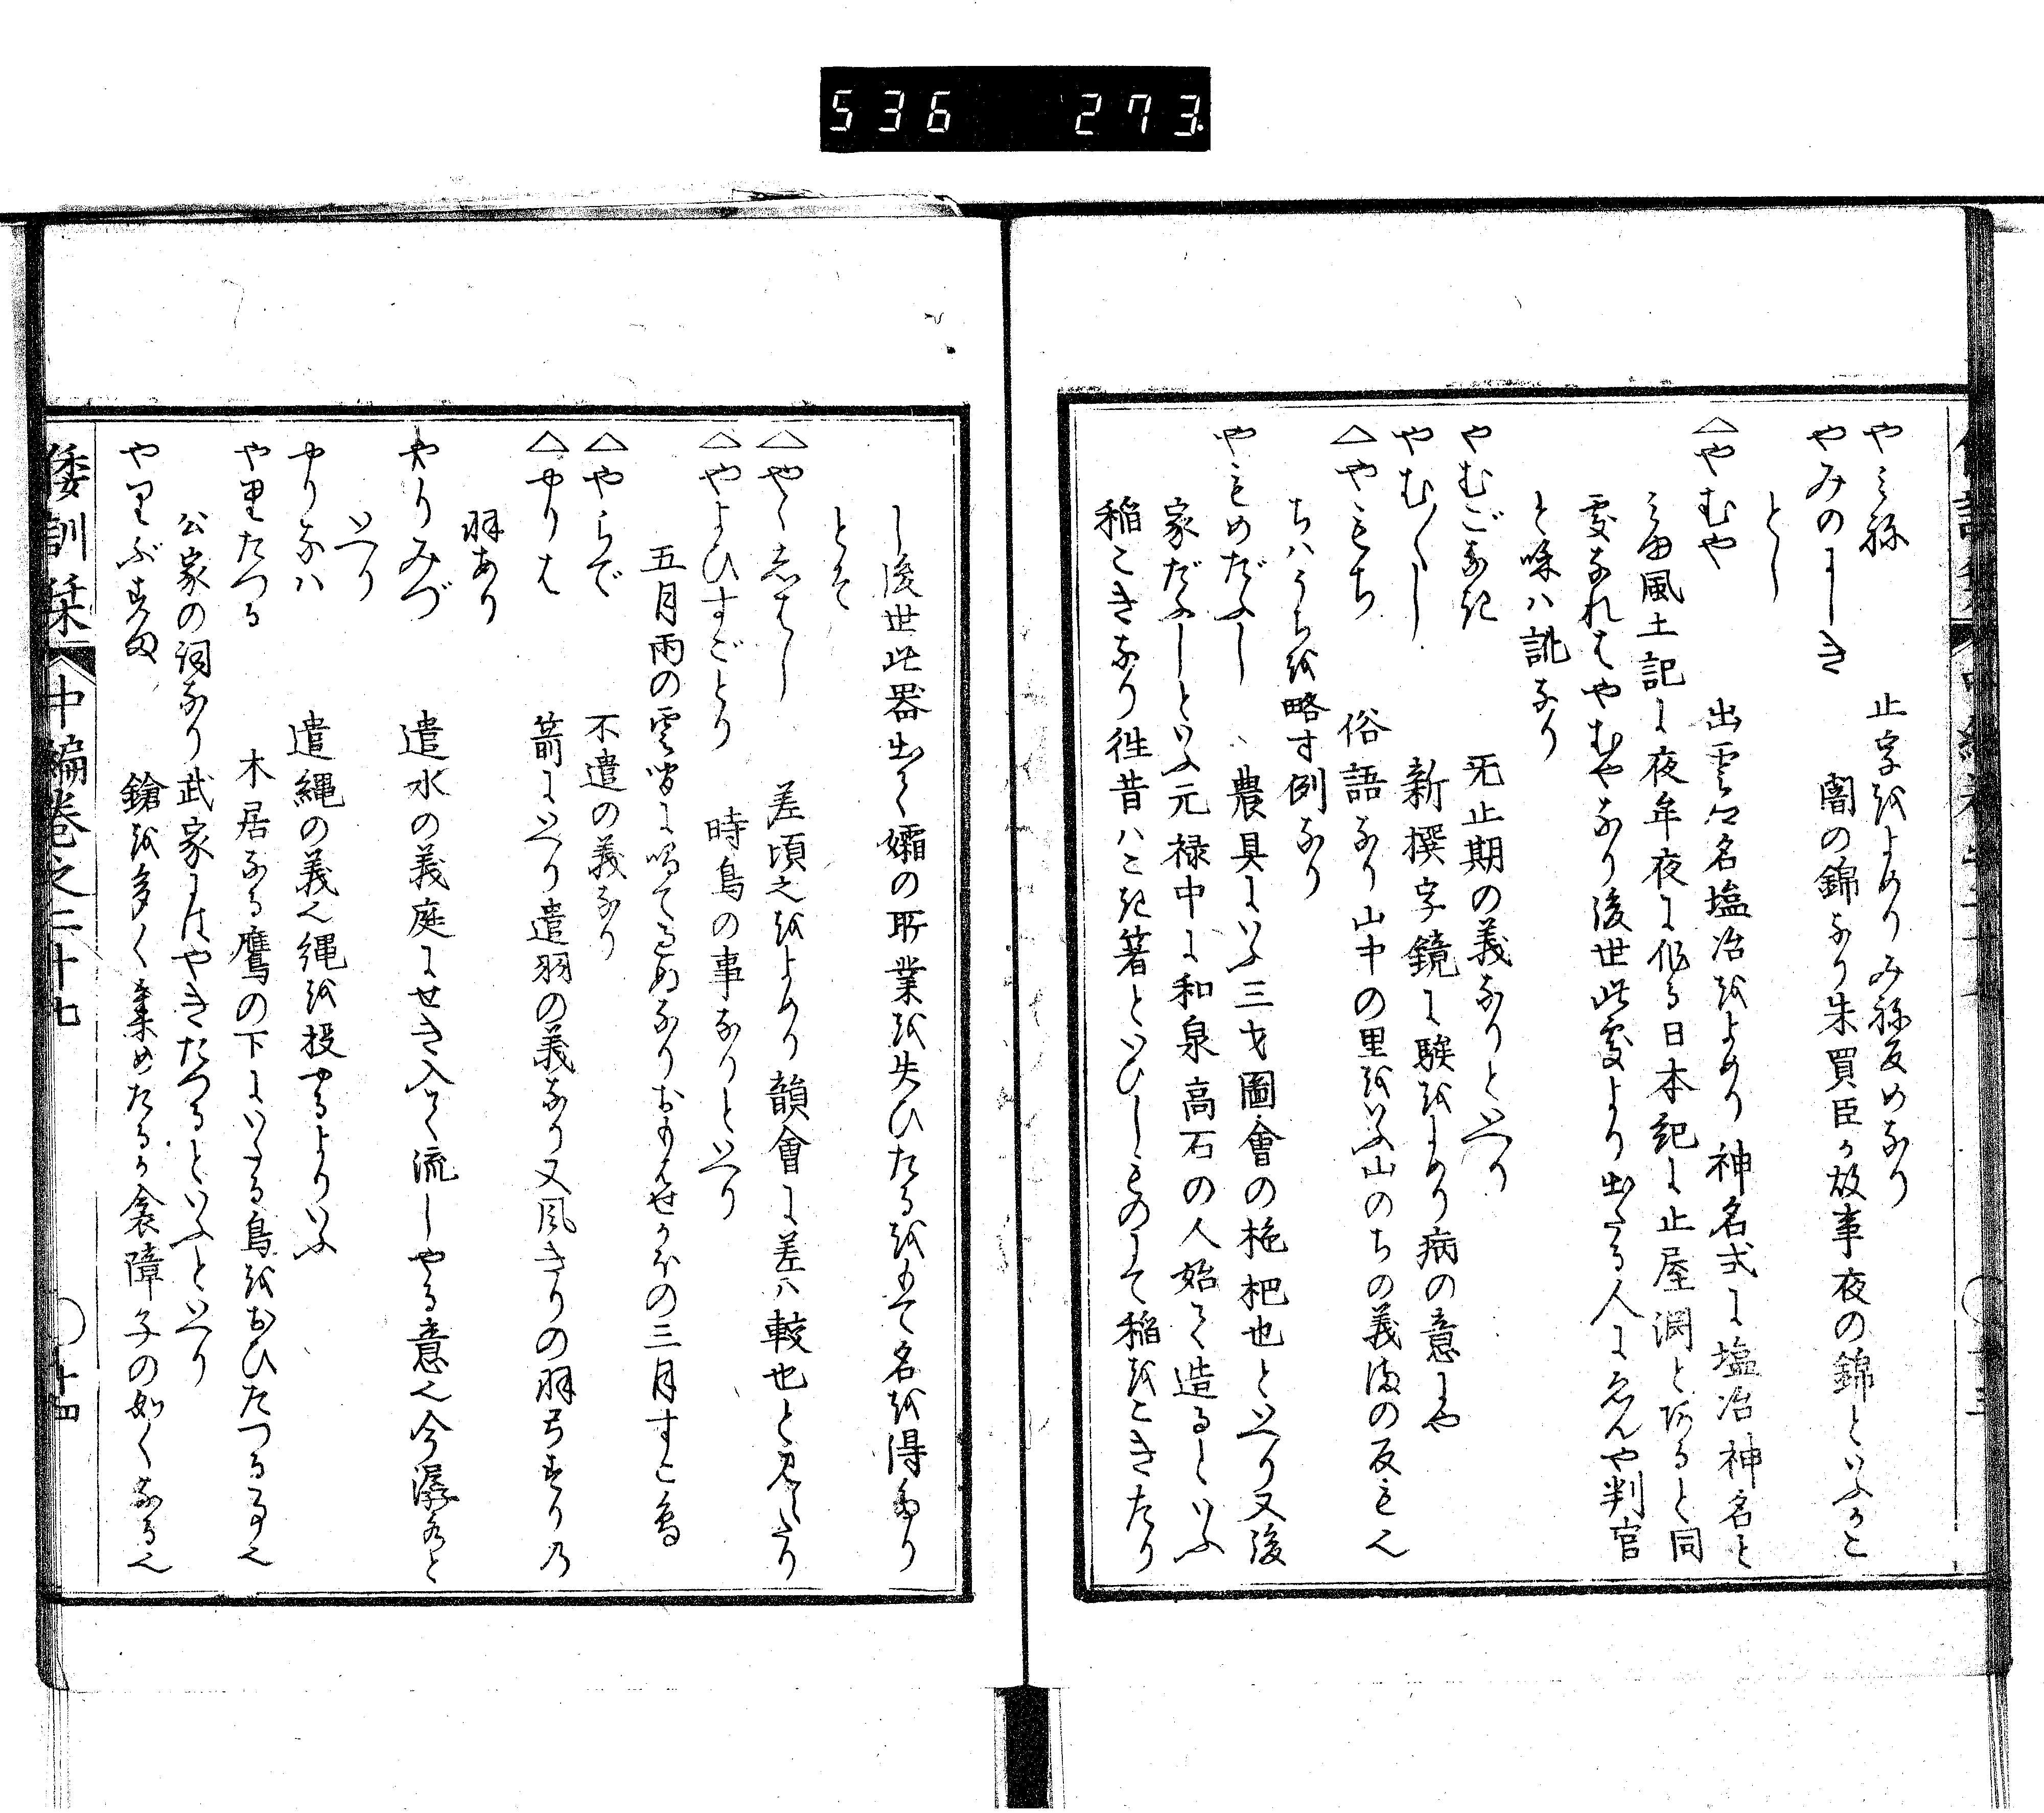 536 273
やみね 止字をよめりみね反めなり
やみのにしき 闇の錦なり朱買臣か故事夜の錦といふかこ
とし
△やむや 出雲國名塩冶をよめり神名式に塩冶神名と
みゆ風土記に夜牟夜に作る日本紀に止屋淵とあると同
處なれはやむやなり後世此處より出たる人にゑんや判官
と唱ハ訛なり
やむごなき 无止期の義なりといへり
やむ〳〵し 新撰字鏡に騃をよめり病の意にや
△やもち 俗語なり山中の里をいふ山のちの義まの反も也
ちハうちを略す例なり
やもめだふし 農具にいふ三才圖會の杷也といへり又後
家だふしといふ元禄中に和泉高石の人始て造るといふ
稲こきなり徃昔ハこき箸といひしものにて稲をこきたり
し後世此器出て孀の所業を失ひたるをもて名を得たり
とそ
△やゝはし 差頃之をよめり韻會に差ハ較也と見えたり
△やよひすごどり 時鳥の事なりといへり
五月雨の雲皆に鳴て過ぬなりおもはせかほの三月すこ鳥
△やらで 不遣の義なり
△やりは 箭にいへり遣羽の義なり又風きりの羽弓すりの
羽あり
やりみづ 遣水の義庭にせき入て流しやる意也今潺湲と
いへり
やりなハ 遣縄の義也縄を投やるよりいふ
やりたつる 木居なる鷹の下にいたる鳥をおひたつる事也
公家の詞なり武家にはやきたつるといふといへり
やりぶすま 鎗を多く集めたるか衾障子の如くなる也
倭訓栞 中編巻之二十七 十四